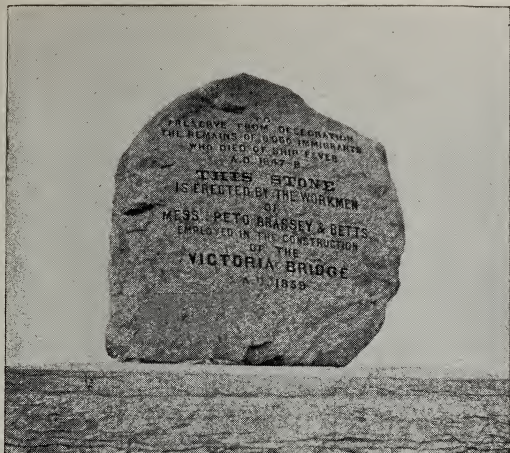 TO
PRESERVE FROM DESECRATION
THE REMAINS OF 6000 IMMIGRANTS
WHO DIED OF SHIP FEVER
A.D. 1847-8
THIS STONE
IS ERECTED BY THE WORKMEN
OF
MESS. PETO BRASSEY & BETTS
EMPLOYED IN THE CONSTRUCTION
OF THE
VICTORIA BRIDGE
A.D. 1859